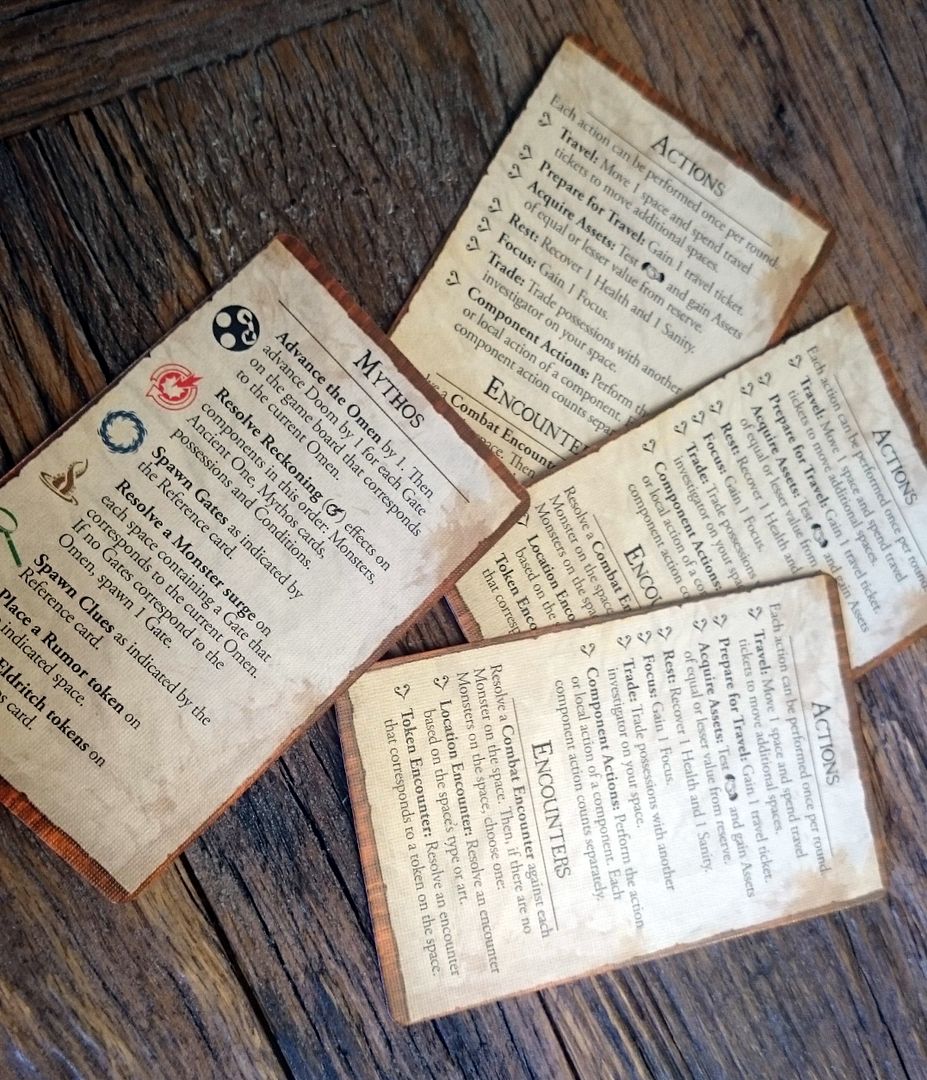 MYTHOS
Advance the Omen by 1. Then
advance Doom by 1 for each Gate
on the game board that corresponds
to the current Omen.
Resolve Reckoning ( ) effects on
components in this order: Monsters,
Ancient One, Mythos cards,
possessions and Conditions.
Spawn Gates as indicated by
the Reference card.
Resolve a Monster surge on
each space containing a Gate that
corresponds to the current Omen.
If no Gates correspond to the
Omen, spawn 1 Gate.
Spawn Clues as indicated by the
Reference card.
Place a Rumor token on
indicated space.
Eldritch tokens on
card.
ACTIONS
Each action can be performed once per round.
Travel: Move 1 space and spend travel
tickets to move additional spaces.
Prepare for Travel: Gain 1 travel ticket.
Acquire Assets: Test and gain Assets
of equal or lesser value from reserve.
Rest: Recover 1 Health and 1 Sanity.
Focus: Gain 1 Focus.
Trade: Trade possessions with another
investigator on your space.
Component Actions: Perform th
or local action of a component. E
component action counts separ
ENCOUNTE
a Combat Encoun
space. Then
ACTIONS
Each action can be performed once per roun
Travel: Move 1 space and spend travel
tickets to move additional spaces.
Prepare for Travel: Gain 1 travel ticket.
Acquire Assets: Test and gain Assets
of equal or lesser value from
Rest: Recover 1 Health and
Focus: Gain 1 Focus.
Trade: Trade possessions
investigator on your spa
Component Actions:
or local action of a c
component action c
ENCOU
Resolve a Combat En
Monster on the space
Monsters on the spa
Location Enco
based on the
Token Encou
that corresp
ACTIONS
Each action can be performed once per round.
Travel: Move 1 space and spend travel
tickets to move additional spaces.
Prepare for Travel: Gain 1 travel ticket.
Acquire Assets: Test and gain Assets
of equal or lesser value from reserve.
Rest: Recover 1 Health and 1 Sanity.
Focus: Gain 1 Focus.
Trade: Trade possessions with another
investigator on your space.
Component Actions: Perform the action
or local action of a component. Each
component action counts separately.
ENCOUNTERS
Resolve a Combat Encounter against each
Monster on the space. Then, if there are no
Monsters on the space, choose one:
Location Encounter: Resolve an encounter
based on the space's type or art.
Token Encounter: Resolve an encounter
that corresponds to a token on the space.